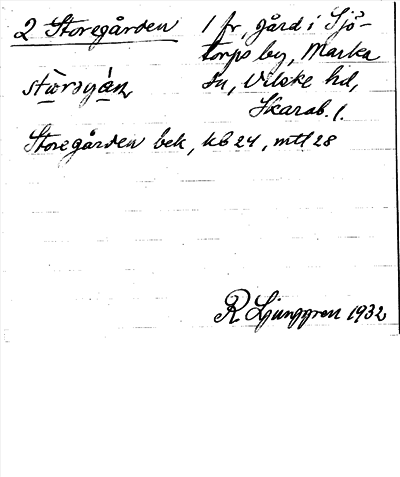 2 Storegården 1 fr, gård i Sjö-
torps by, Marka
sn, Vilske hd,
Skarab. l.
Storegården bek, kb 24, mtl 28
R Ljunggren 1932